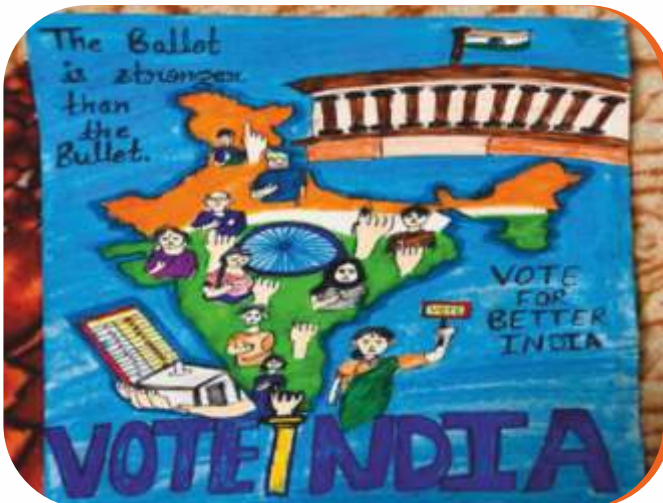 The Ballot
is stronger
than
the
Bullet.
VOTE
FOR
BETTER
INDIA
VOTE
VOTE INDIA